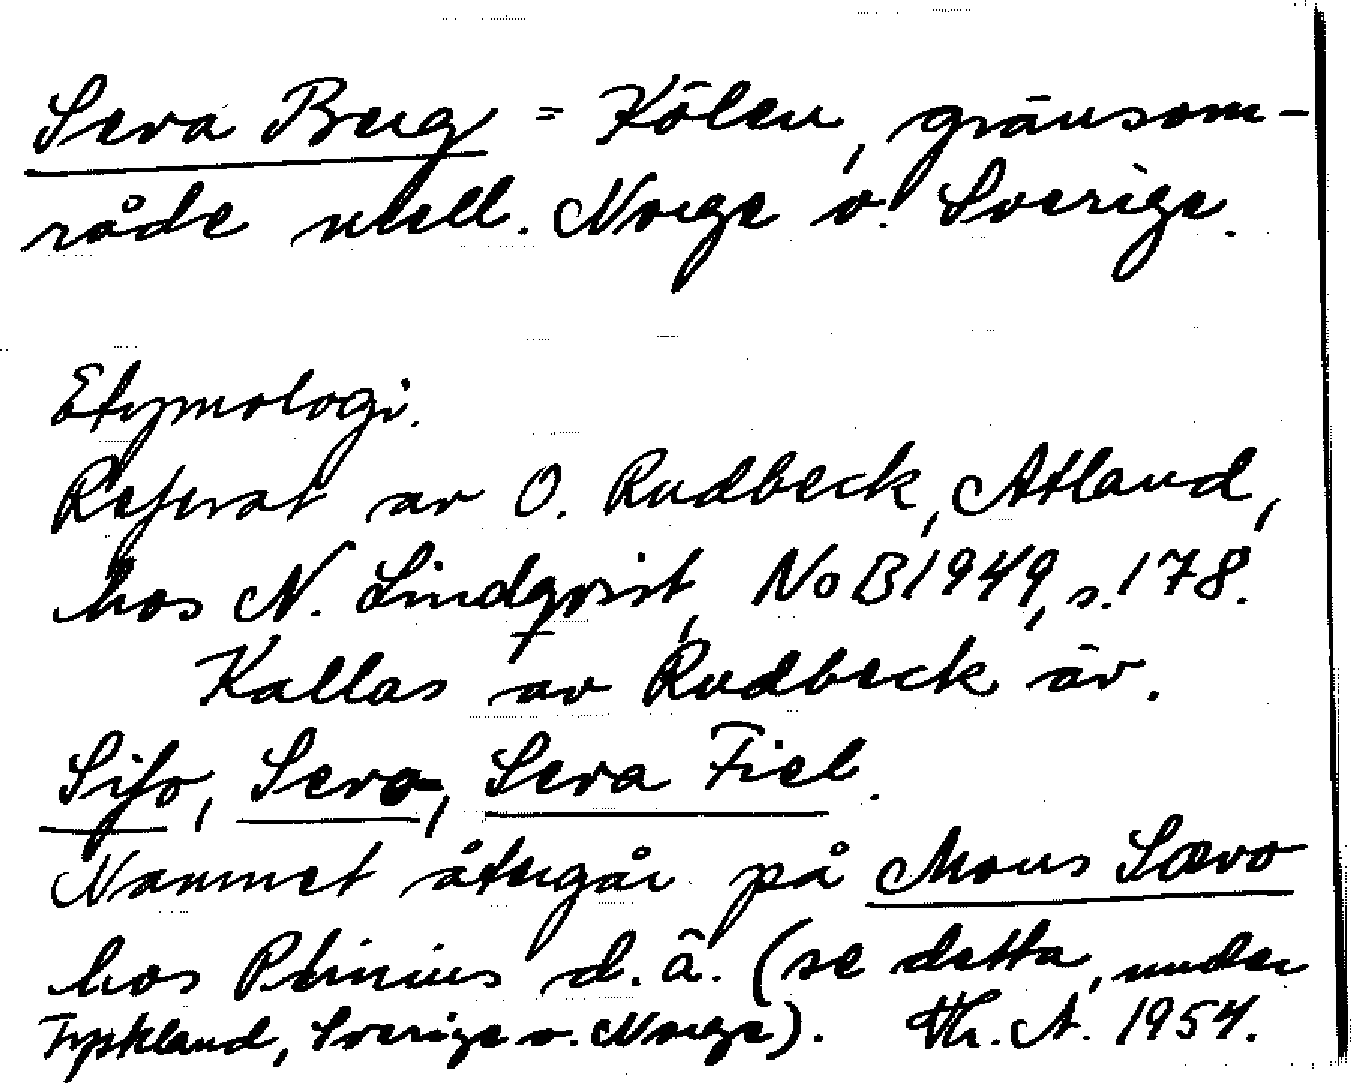 Seva Berg = Kölen, gränsom-
råde mell. Norge o. Sverige.
Etymologi.
Referat av O. Rudbeck, Atland,
hos N. Lindqvist, NoB 1949, s. 178.
Kallas av Rudbeck äv.
Sifo, Sevo, Seva Fiel.
Namnet återgår på Mons Sævo
hos Plinius d. ä. (se detta, under
Tyskland, Sverige o. Norge). Th. A. 1954.